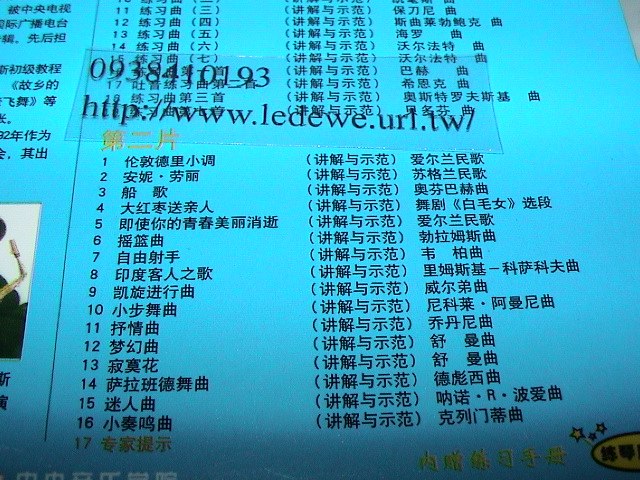 被中央电视
11 练习曲（三） （讲解与示范） 保刀尼 曲
国际广播电台
12 练习曲（四） （讲解与示范） 斯曲莱勃鲍克 曲
辑。先后担
13 练习曲（五） （讲解与示范） 海罗 曲
14 练习曲（六） （讲解与示范） 沃尔法特 曲
15 练习曲（七） （讲解与示范） 沃尔法特 曲
斯初级教程
0938410193
巴赫 曲
《故乡的
希恩克 曲
飞舞》等
练习曲第三首 奥斯特罗夫斯基 曲
http://www.ledewe.url.tw/
贝多芬 曲
第二片
92年作为
1 伦敦德里小调 （讲解与示范） 爱尔兰民歌
会，其出
2 安妮·劳丽 （讲解与示范） 苏格兰民歌
3 船 歌 （讲解与示范） 奥芬巴赫曲
4 大红枣送亲人 （讲解与示范） 舞剧《白毛女》选段
5 即使你的青春美丽消逝 （讲解与示范） 爱尔兰民歌
6 摇篮曲 （讲解与示范） 勃拉姆斯曲
7 自由射手 （讲解与示范） 韦 柏曲
8 印度客人之歌 （讲解与示范） 里姆斯基－科萨科夫曲
9 凯旋进行曲 （讲解与示范） 威尔弟曲
10 小步舞曲 （讲解与示范） 尼科莱·阿曼尼曲
11 抒情曲 （讲解与示范） 乔丹尼曲
12 梦幻曲 （讲解与示范） 舒 曼曲
13 寂寞花 （讲解与示范） 舒 曼曲
14 萨拉班德舞曲 （讲解与示范） 德彪西曲
15 迷人曲 （讲解与示范） 呐诺·R·波爱曲
16 小奏鸣曲 （讲解与示范） 克列门蒂曲
17 专家提示
内赠练习手册
中央音乐学院